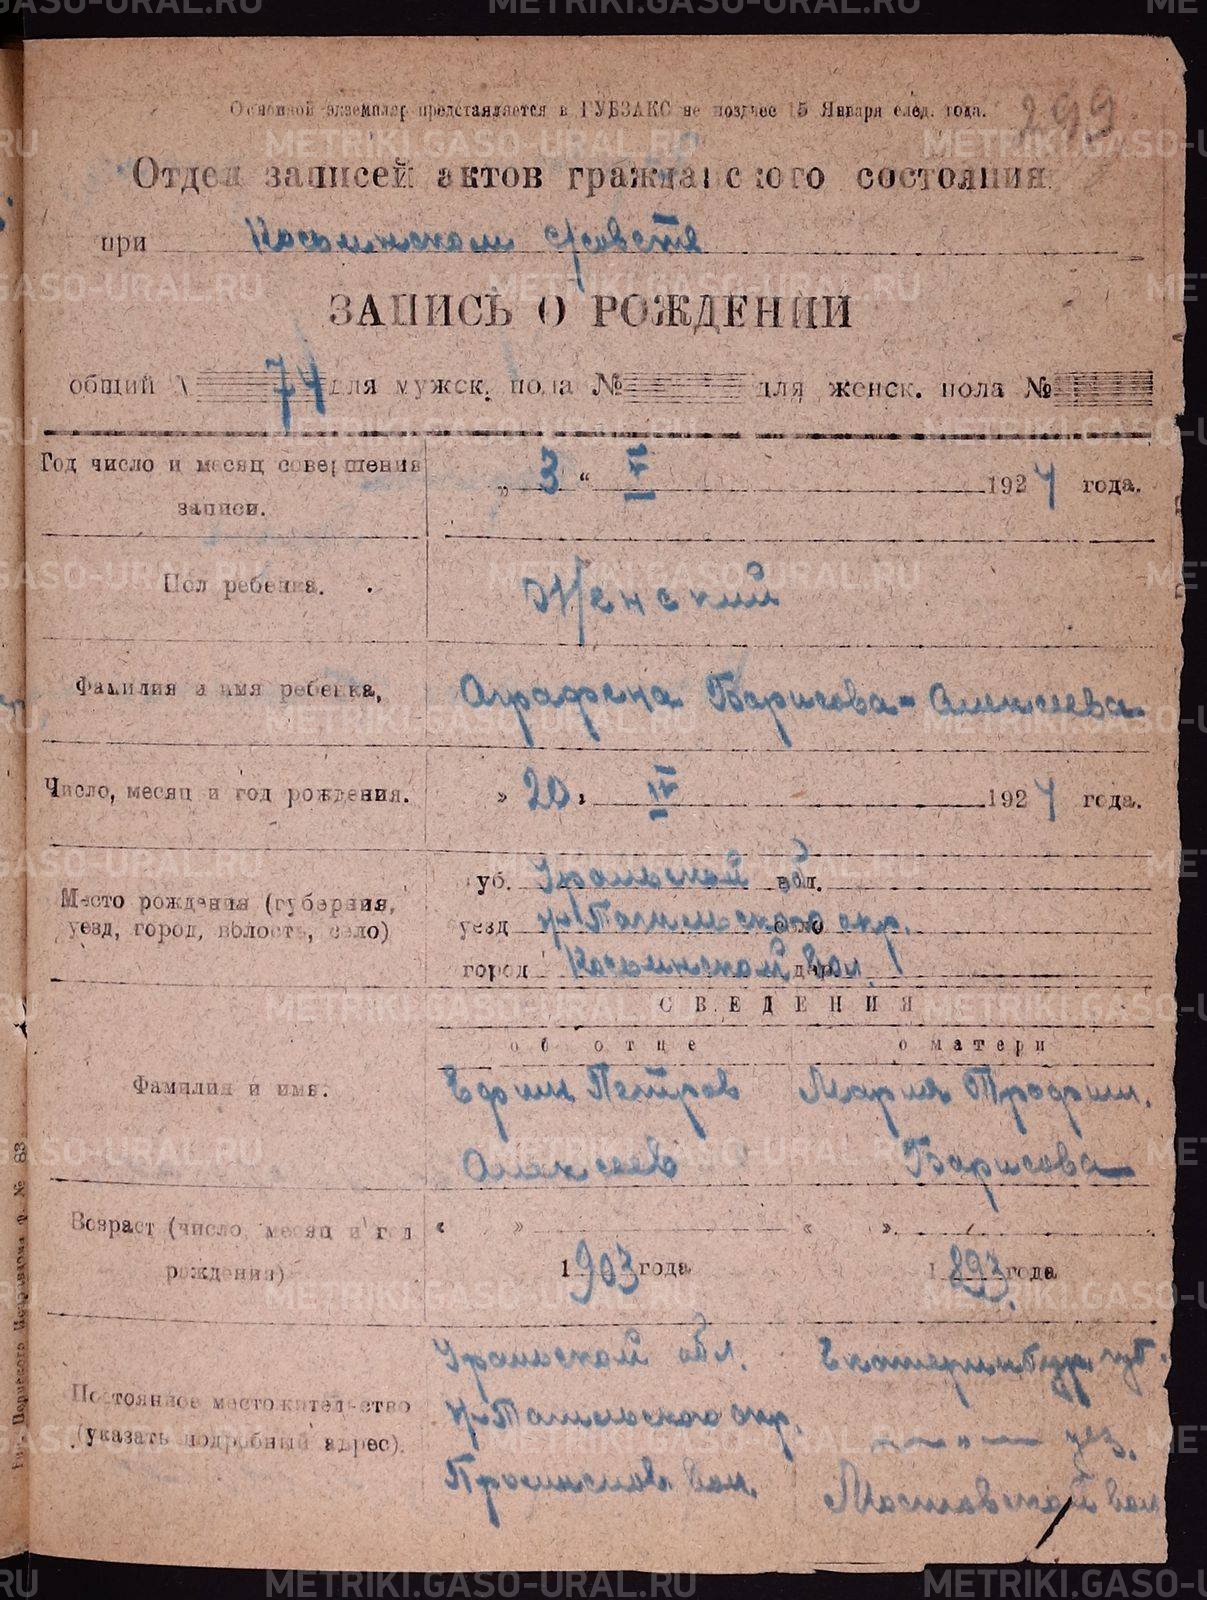 METRIKI.GASO-URAL.RU
Основной экземпляр представляется в ГУБЗАКС не позднее 15 Января след. года.
299
Отдел записей актов гражданского состояния
при Косьинском с/совете
ЗАПИСЬ О РОЖДЕНИИ
общий № 74 для мужск. пола № для женск. пола №
Год число и месяц совершения записи. „ 3 “ IV 1924 года.
Пол ребенка. Женский
Фамилия и имя ребенка, Аграфена Барисова-Алексеева
Число, месяц и год рождения. » 20 „ IV 1924 года.
Место рождения (губерния, уезд, город, волость, село)
губ. Уральской обл.
уезд Н-Тагильского окр.
город Косьинской вол.
СВЕДЕНИЯ
об отце о матери
Фамилия и имя. Ефим Петров Мария Трофим.
Алексеев Барисова
Возраст (число, месяц и год рождения) « » « »
1903 года 1893 года
Постоянное местожительство (указать подробный адрес).
Уральской обл. Екатеринбур. губ.
Н-Тагильского окр. —„— уез.
вол. вол